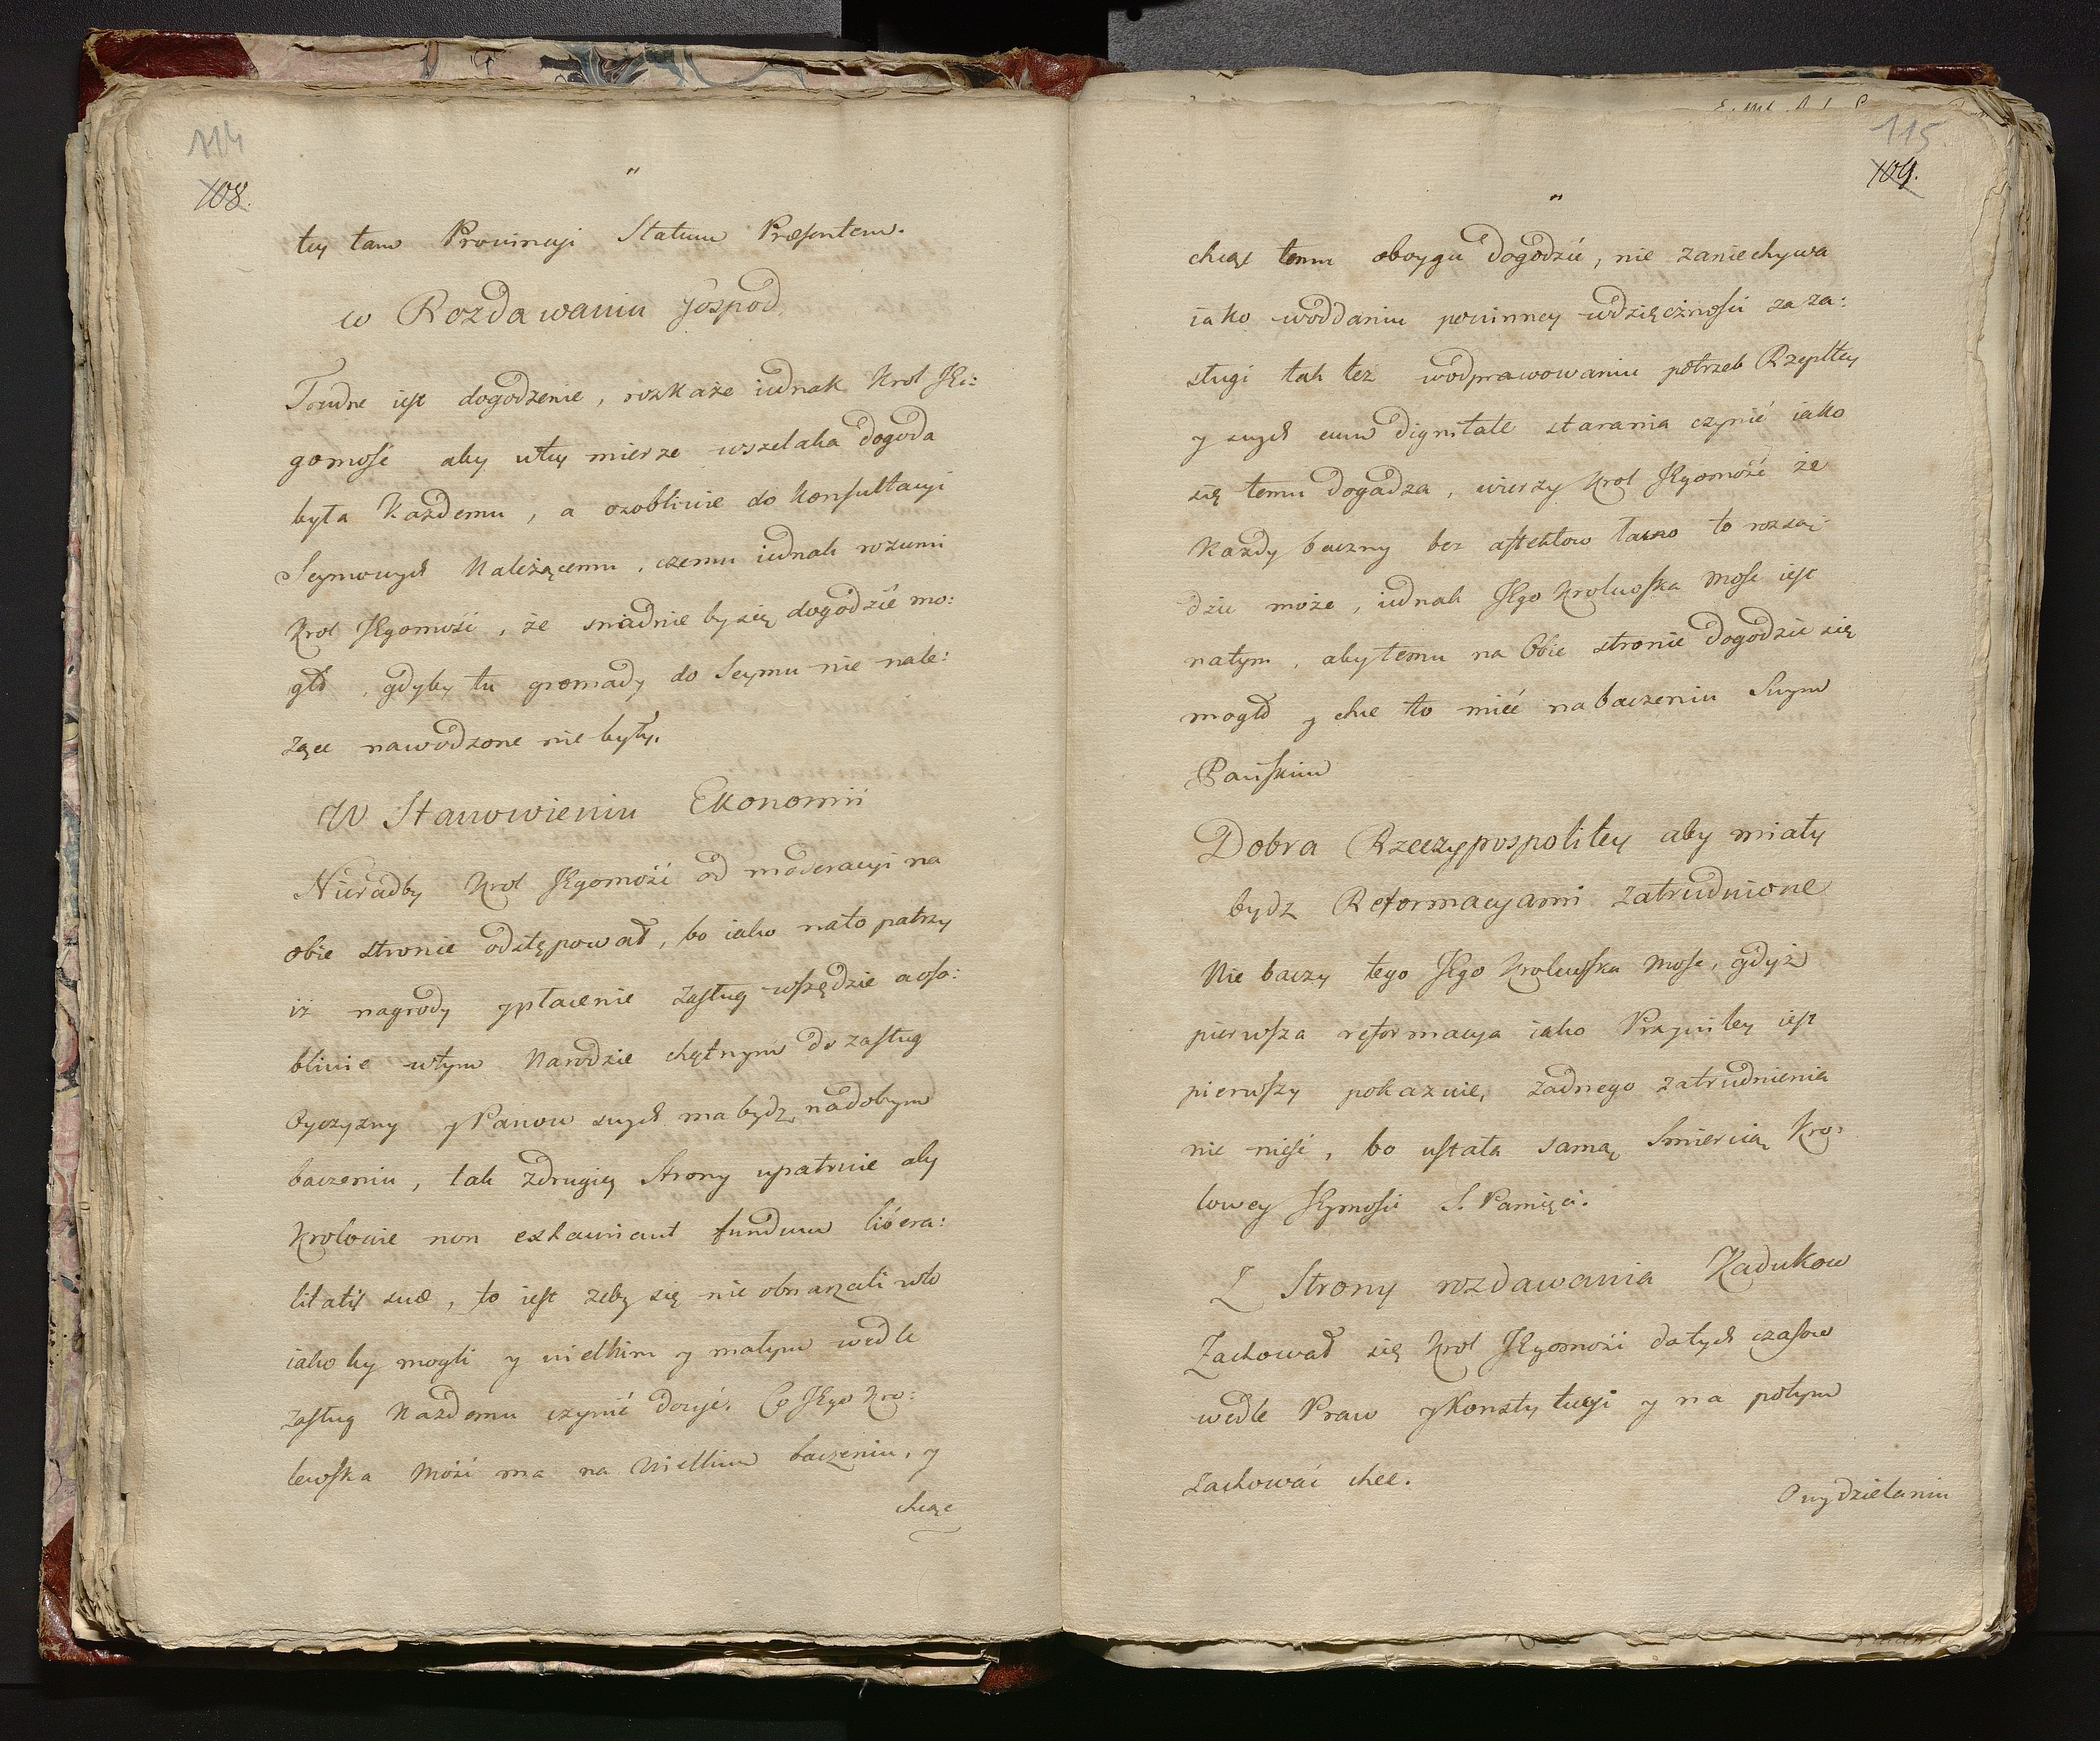 114
108.
tey tam Prowincyi Statum Præsentem.
w Rozdawaniu Gospod
Trudne iest dogodzenie, rozkaże iednak Krol JEi:
gomość aby wtey mierze wszelaka dogoda
była Każdemu, a osobliwie do Konsultacyi
Seymowych Należącemu, czemu iednak rozumi
Krol JEgomość, że snadnie by się dogodzić mo:
gło, gdyby tu gromady do Seymu nie nale:
żące nawodzone nie były.
W Stanowieniu Ekonomii
Nieradby Krol JEgomość od moderacyi na
obie stronie odstępował, bo iako na to patrzy
iż nagrody y płacenie zasług wszędzie a oso:
bliwie wtym Narodzie chętnym do zasług
Oyczyzny y Panow swych ma bydź nadobrym
baczeniu, tak zdrugiey Strony upatruie aby
Krolowie non exhauriant fundum libera:
litatis suæ, to iest żeby się nie obnażali wto
iako by mogli y wielkim y małym wedle
zasług Każdemu czynić dosyć. Co JEgo Kro:
lewska Mość ma na Wielkim baczeniu, y
chcąc
115
109.
chcąc temu oboygu dogodzić, nie zaniechywa
iako woddaniu powinney wdzięczności za za:
sługi tak też wodprawowaniu potrzeb Rzepltey
y swych cum dignitate starania czynić iako
się temu dogadza, wierzy Krol JEgomość że
Każdy baczny bez affektow łacno to rozsą:
dzić może, iednak JEgo Krolewska Mość iest
natym, aby temu na Obie stronie dogodzić się
mogło y chce to mieć na baczeniu Swym
Pańskim
Dobra Rzeczypospolitey aby miały
bydz Reformacyami zatrudnione
Nie baczy tego JEgo Krolewska Mość, gdyż
pierwsza reformacya iako Przywiley iest
pierwszy pokazuie, żadnego zatrudnienia
nie niesie, bo ustała samą Smiercią Kro:
lowey JEymości S. Pamięci.
Z Strony rozdawania Kadukow
Zachował się Krol JEgomość do tych czasow
wedle Praw y Konstytucyi y na potym
zachować chce.
O wydzielaniu